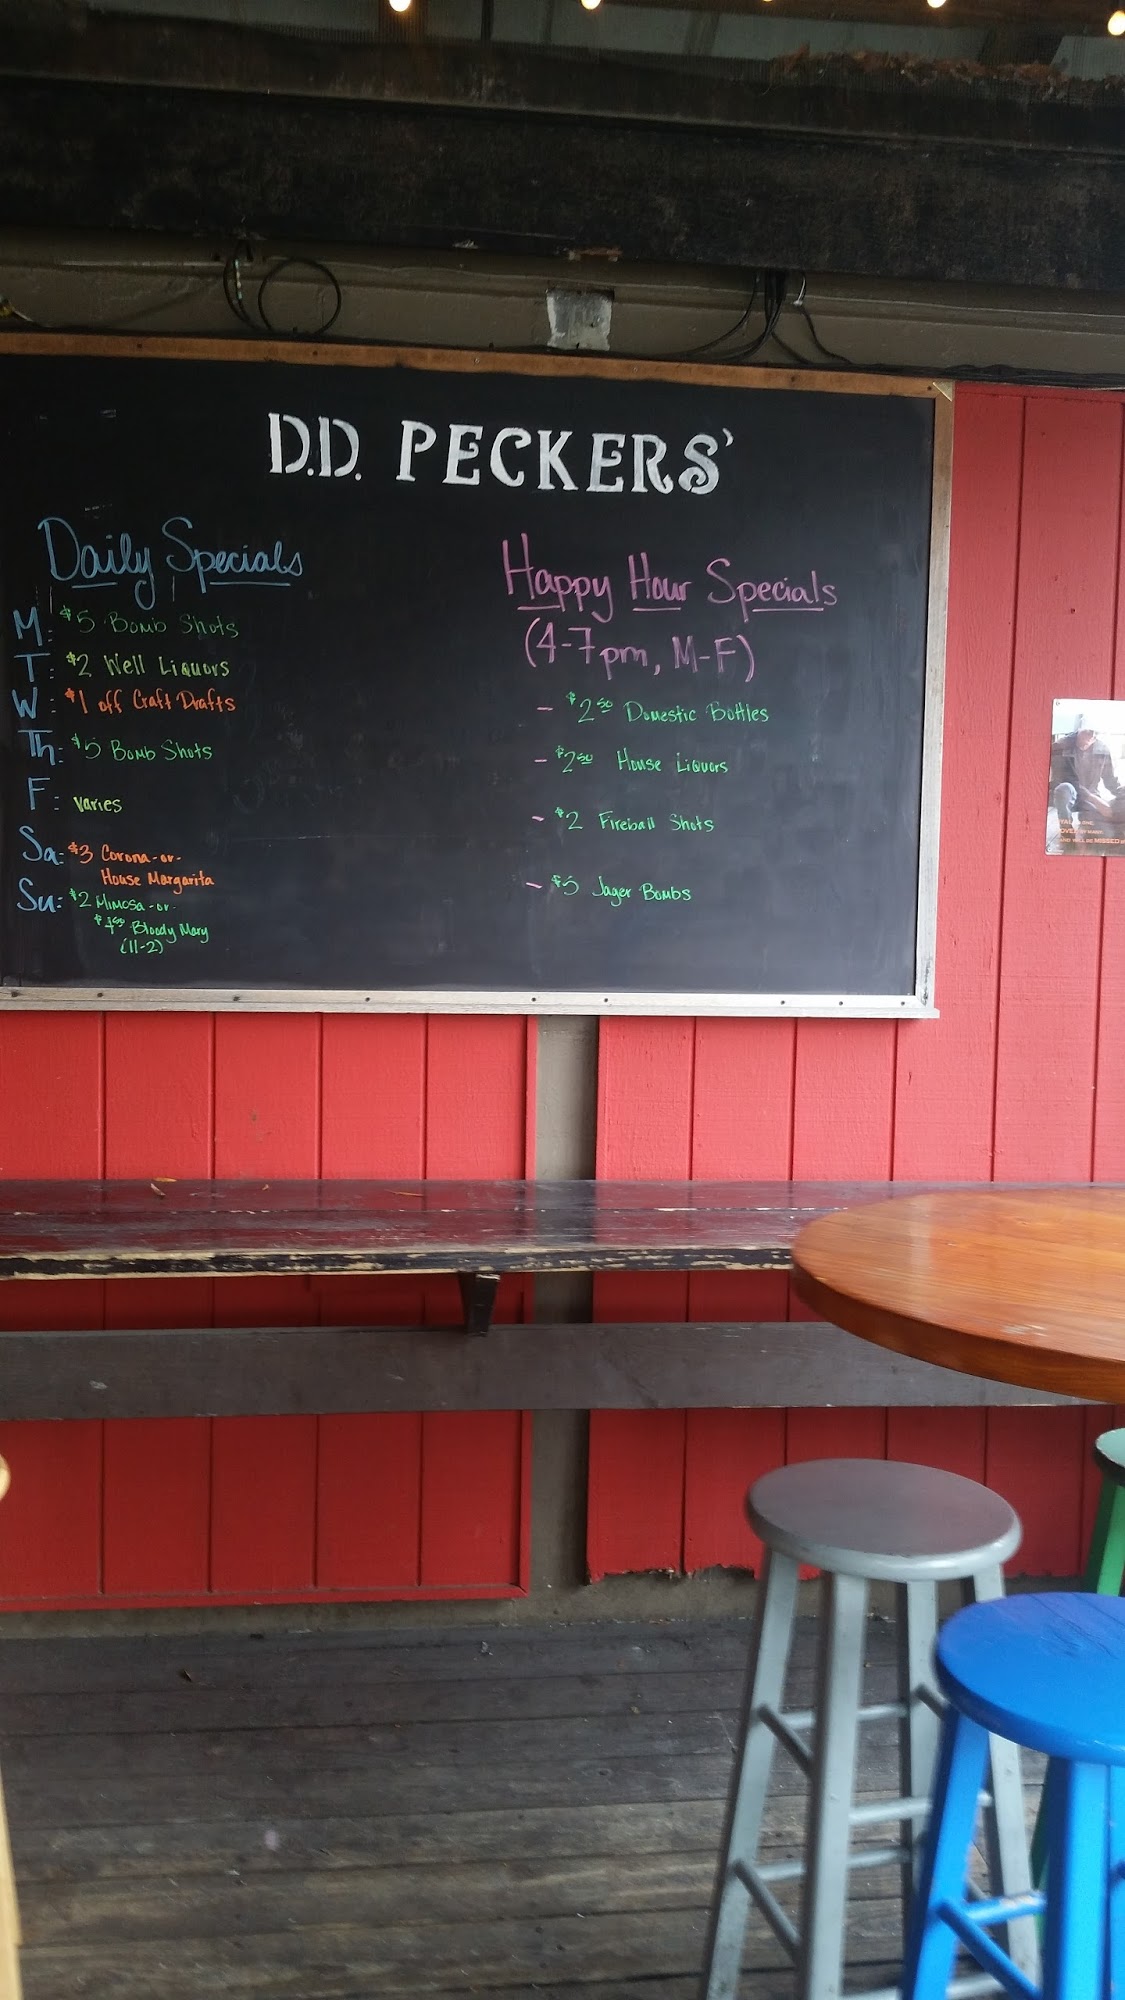 D.D. PECKERS'
Daily Specials
M: $5 Bomb Shots
T: $2 Well Liquors
W: $1 off Craft Drafts
Th: $5 Bomb Shots
F: varies
Sa: $3 Corona -or-
House Margarita
Su: $2 Mimosa -or-
Bloody Mary
(11-2)
Happy Hour Specials
(4-7pm, M-F)
- $2.50 Domestic Bottles
- $2.50 House Liquors
- $2 Fireball Shots
- $5 Jager Bombs
AND WILL BE MISSED